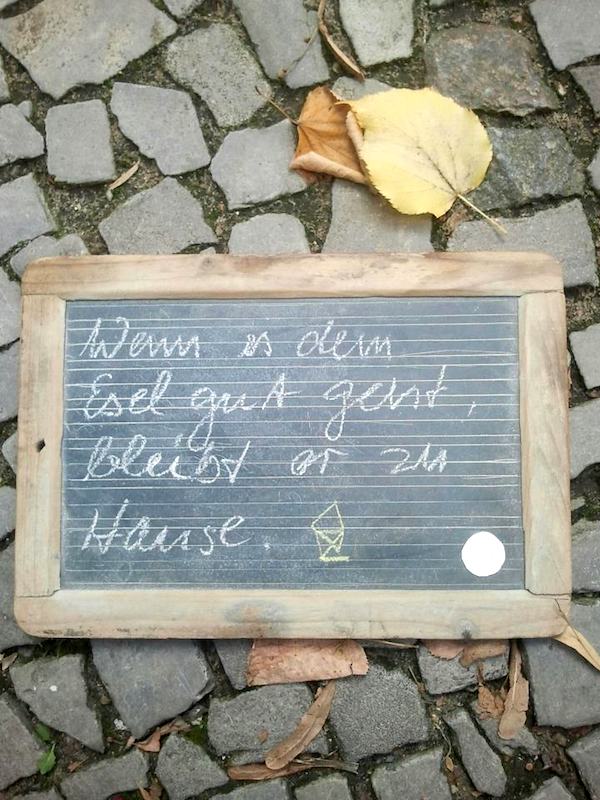 Wenn es dem
Esel gut geht,
bleibt er zu
Hause.